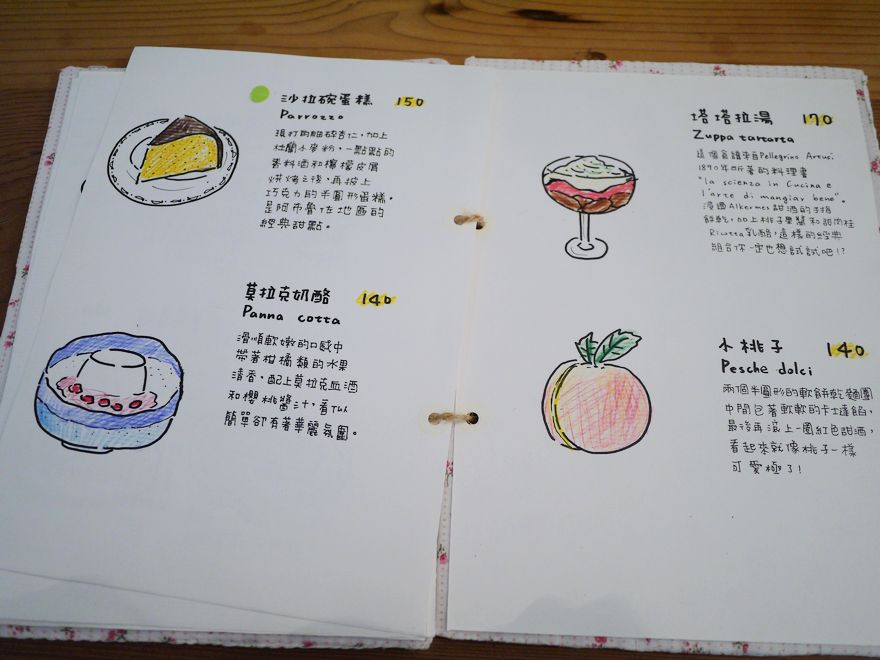 沙拉碗蛋糕 150
Parrozzo
現打的細碎杏仁,加上
杜蘭小麥粉,一點點的
香料酒和檸檬皮屑
烘烤之後,再披上
巧克力的半圓形蛋糕。
是阿布魯佐地區的
經典甜點。
莫拉克奶酪 140
Panna cotta
滑順軟嫩的口感中
帶著柑橘類的水果
清香,配上莫拉克血酒
和櫻桃醬汁,看似
簡單卻有著華麗氛圍。
塔塔拉湯 170
Zuppa tartarta
這個食譜來自Pellegrino Artusi
1890年所著的料理書
"la scienza in Cucina e
l'arte di mangiar bene"。
浸過Alkermes甜酒的手指
餅乾,加上桃子果醬和甜肉桂
Ricotta乳酪,這樣的經典
組合你一定也想試試吧!?
小桃子 140
Pesche dolci
兩個半圓形的軟餅乾麵團
中間包著軟軟的卡士達餡,
最後再滾上一圈紅色甜酒,
看起來就像桃子一樣
可愛極了!